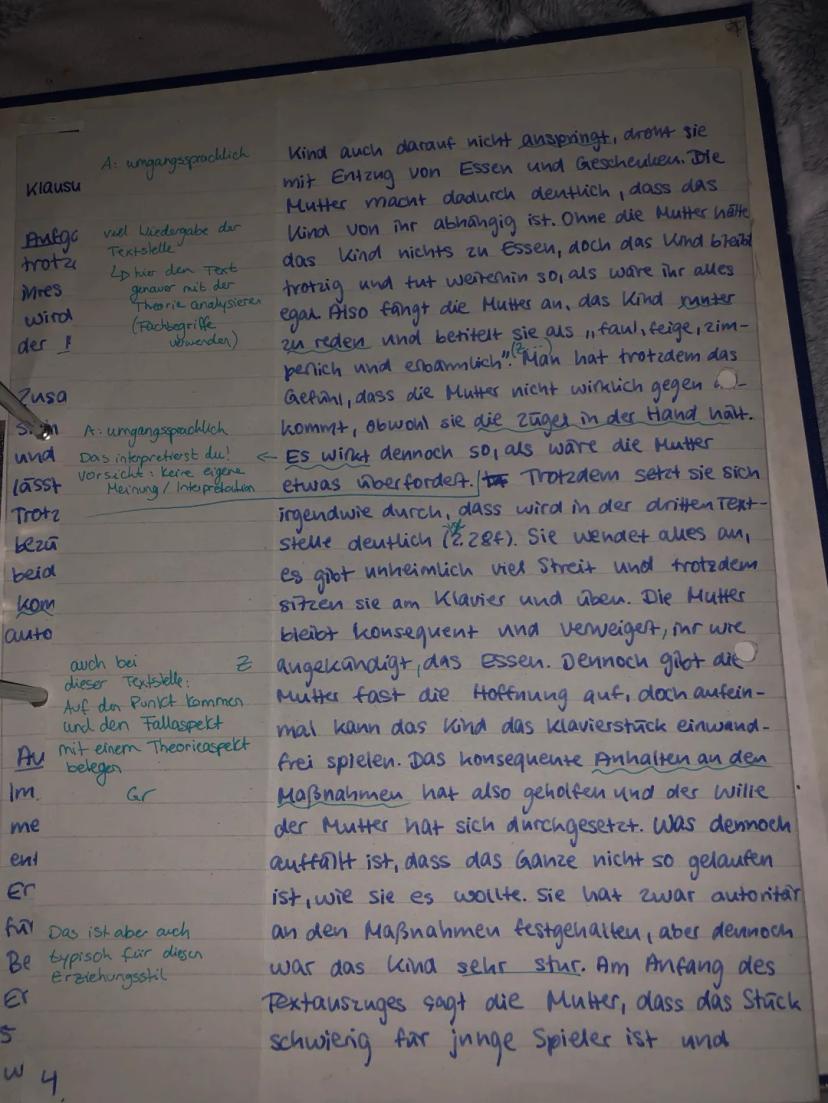 A: umgangssprachlich
viel Wiedergabe der
Textstelle
↳ hier den Text
genauer mit der
Theorie analysieren
(Fachbegriffe
verwenden)
A: umgangssprachlich
Das interpretierst du!
Vorsicht: keine eigene
Meinung / Interpretation
auch bei
dieser Textstelle:
Auf den Punkt kommen
und den Fallaspekt
mit einem Theorieaspekt
belegen
Z
Gr
Das ist aber auch
typisch für diesen
Erziehungsstil
Klausu
Aufga
trotz
ihres
wird
der
Zusa
und
lässt
Trotz
bezü
beid
kom
auto
Au
Im
me
ent
Er
für
Be
Er
S
W 4
Kind auch darauf nicht anspringt, droht sie
mit Entzug von Essen und Geschenken. Die
Mutter macht dadurch deutlich, dass das
Kind von ihr abhängig ist. Ohne die Mutter hätte
das Kind nichts zu Essen, doch das Kind bleibt
trotzig und tut weiterhin so, als wäre ihr alles
egal. Also fängt die Mutter an, das Kind runter
zu reden und betitelt sie als „faul, feige, zim-
perlich und erbärmlich". (Z...) Man hat trotzdem das
Gefühl, dass die Mutter nicht wirklich gegen
kommt, obwohl sie die Zügel in der Hand hält.
Es wirkt dennoch so, als wäre die Mutter
etwas überfordert. Trotzdem setzt sie sich
irgendwie durch, dass wird in der dritten Text-
stelle deutlich (Z. 28f). Sie wendet alles an,
es gibt unheimlich viel Streit und trotzdem
sitzen sie am Klavier und üben. Die Mutter
bleibt konsequent und verweigert, ihr wie
angekündigt, das Essen. Dennoch gibt die
Mutter fast die Hoffnung auf, doch aufein-
mal kann das Kind das Klavierstück einwand-
frei spielen. Das konsequente Anhalten an den
Maßnahmen hat also geholfen und der Wille
der Mutter hat sich durchgesetzt. Was dennoch
auffällt ist, dass das Ganze nicht so gelaufen
ist, wie sie es wollte. Sie hat zwar autoritär
an den Maßnahmen festgehalten, aber dennoch
war das Kind sehr stur. Am Anfang des
Textauszuges sagt die Mutter, dass das Stück
schwierig für junge Spieler ist und